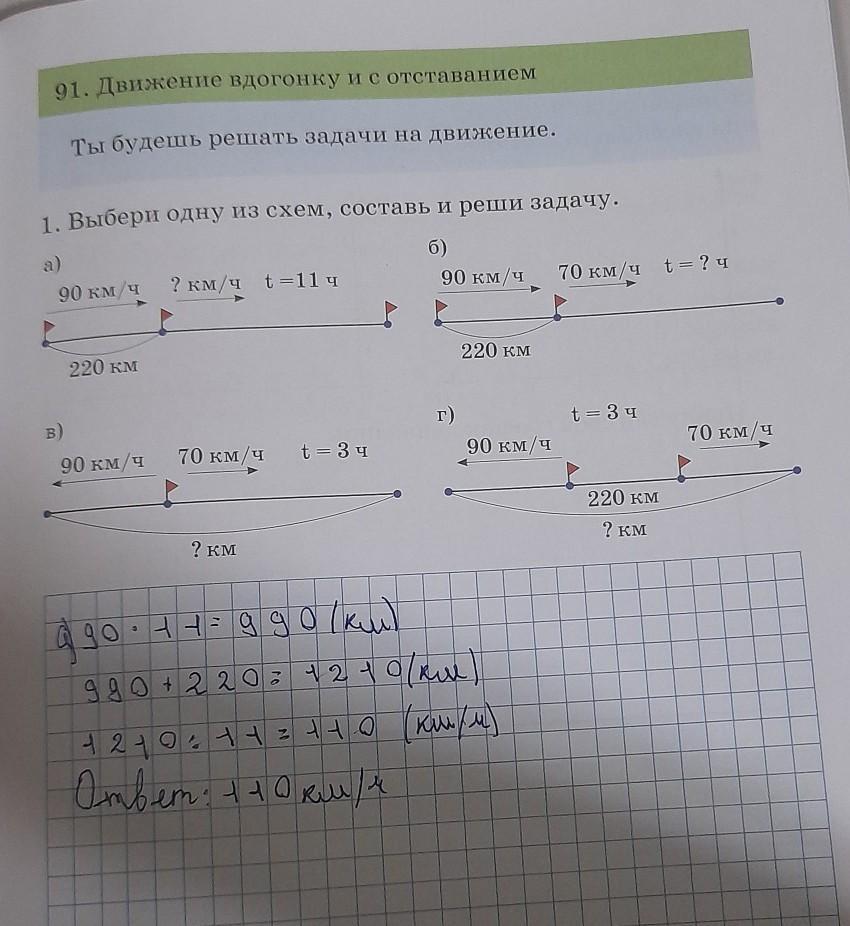 91. Движение вдогонку и с отставанием
Ты будешь решать задачи на движение.
1. Выбери одну из схем, составь и реши задачу.
а)
90 км/ч ? км/ч t =11 ч
220 км
б)
90 км/ч 70 км/ч t = ? ч
220 км
в)
90 км/ч 70 км/ч t = 3 ч
? км
г)
t = 3 ч
90 км/ч 70 км/ч
220 км
? км
а) 90 · 11 = 990 (км)
990 + 220 = 1210 (км)
1210 : 11 = 110 (км/ч)
Ответ: 110 км/ч